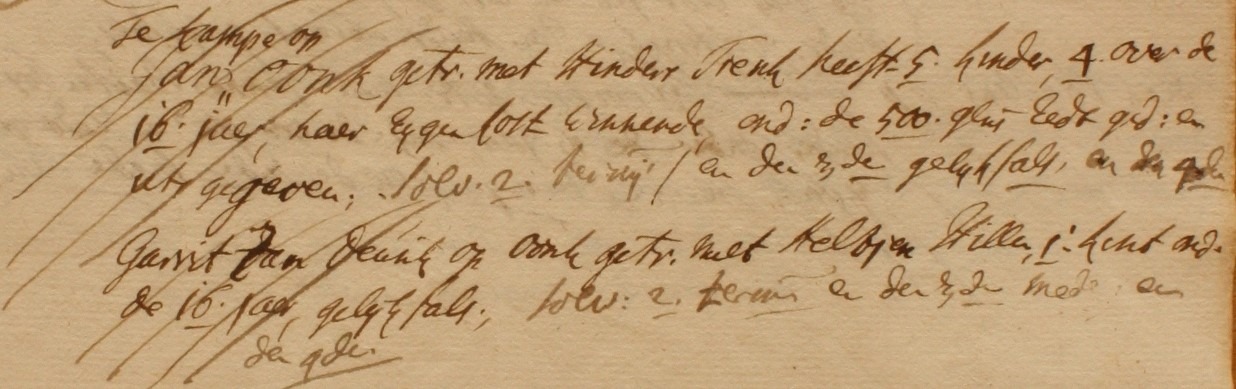 Te kampe op
Jan Oonk getr. met Hinders Trenk heeft 5. kinder, 4. over de
16. jaer, haer Eygen kost winnende ond: de 500. gls Eedt ged: en
uts gegeven; solv. 2. termij / en den 3de gelykfals, en den 4de
Garrit Jan Deunk op Oonk getr. met Helbjen Willen, 1. kint ond.
de 16. jaer, gelykfals, solv: 2. termij en den 3de mede en
den 4de.